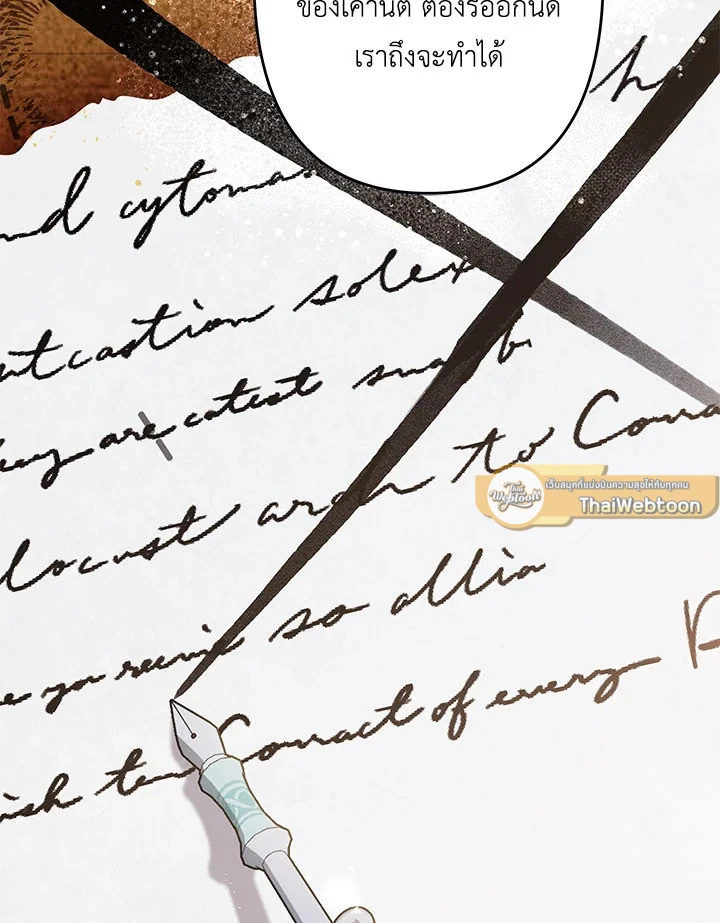 ของเคานต์ ต้องรออีกนิด
เราถึงจะทำได้
h
nd cytoma
ntcastion solex
hey are catest sna b
locust arch to Conra
That Webtoon
เว็บสนุกที่แบ่งปันความสุขให้กับทุกคน
ThaiWebtoon
e you recrie so allia
ish ten Conract of every D